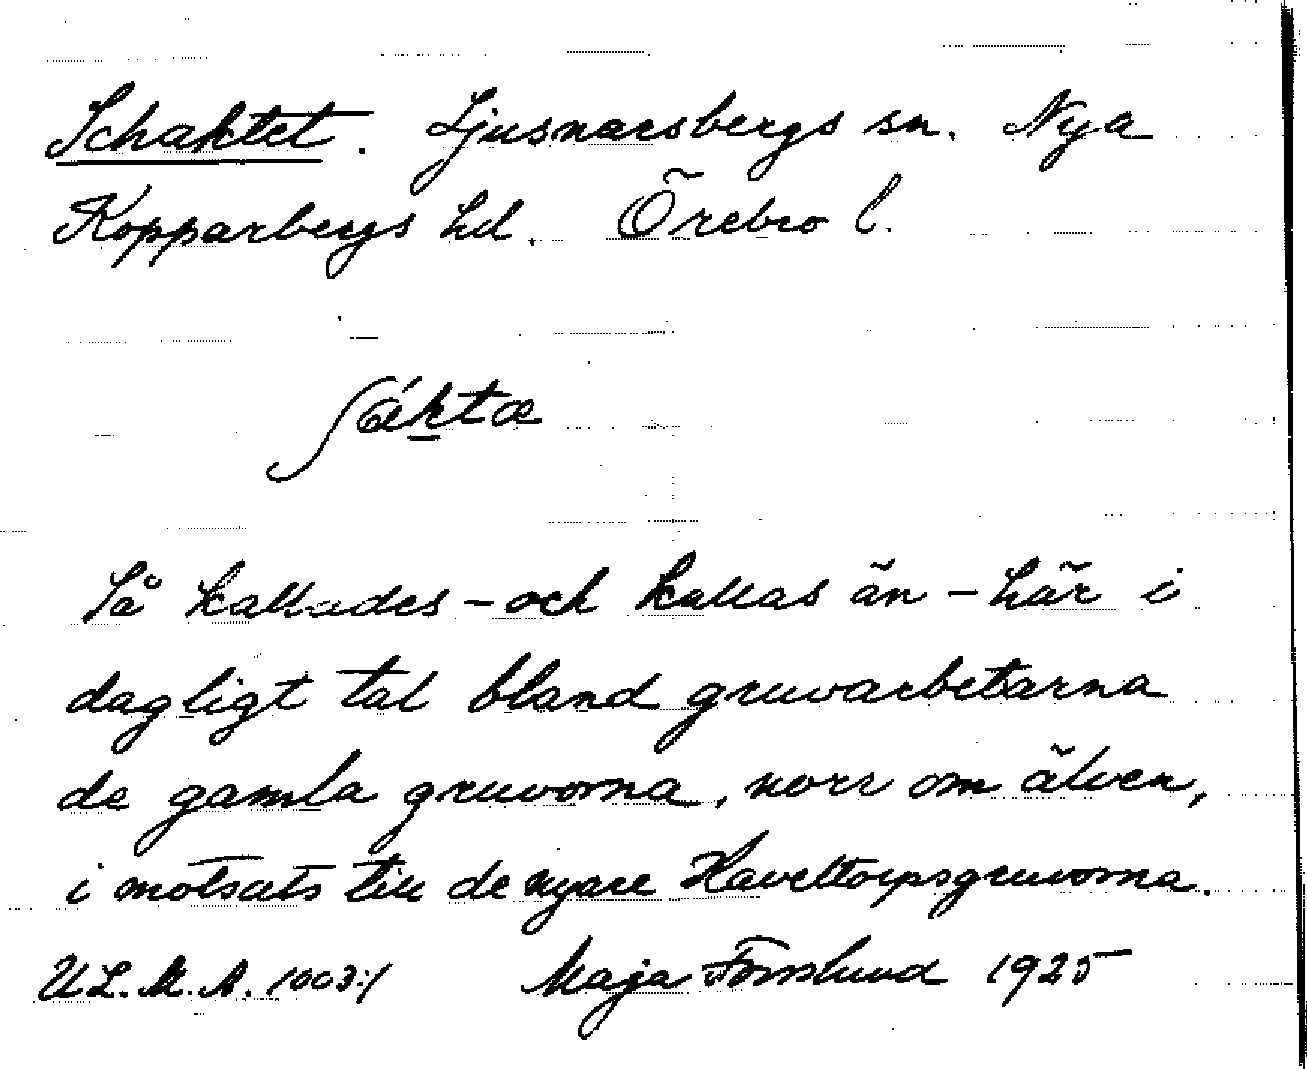 Schaktet. Ljusnarsbergs sn. Nya
Kopparbergs hd. Örebro l.
Så kallades - och kallas än - här i
dagligt tal bland gruvarbetarna
de gamla gruvorna, norr om älven,
i motsats till de nyare Kaveltorpsgruvorna.
U.L.M.A. 1003:1 Maja Forsslund 1925